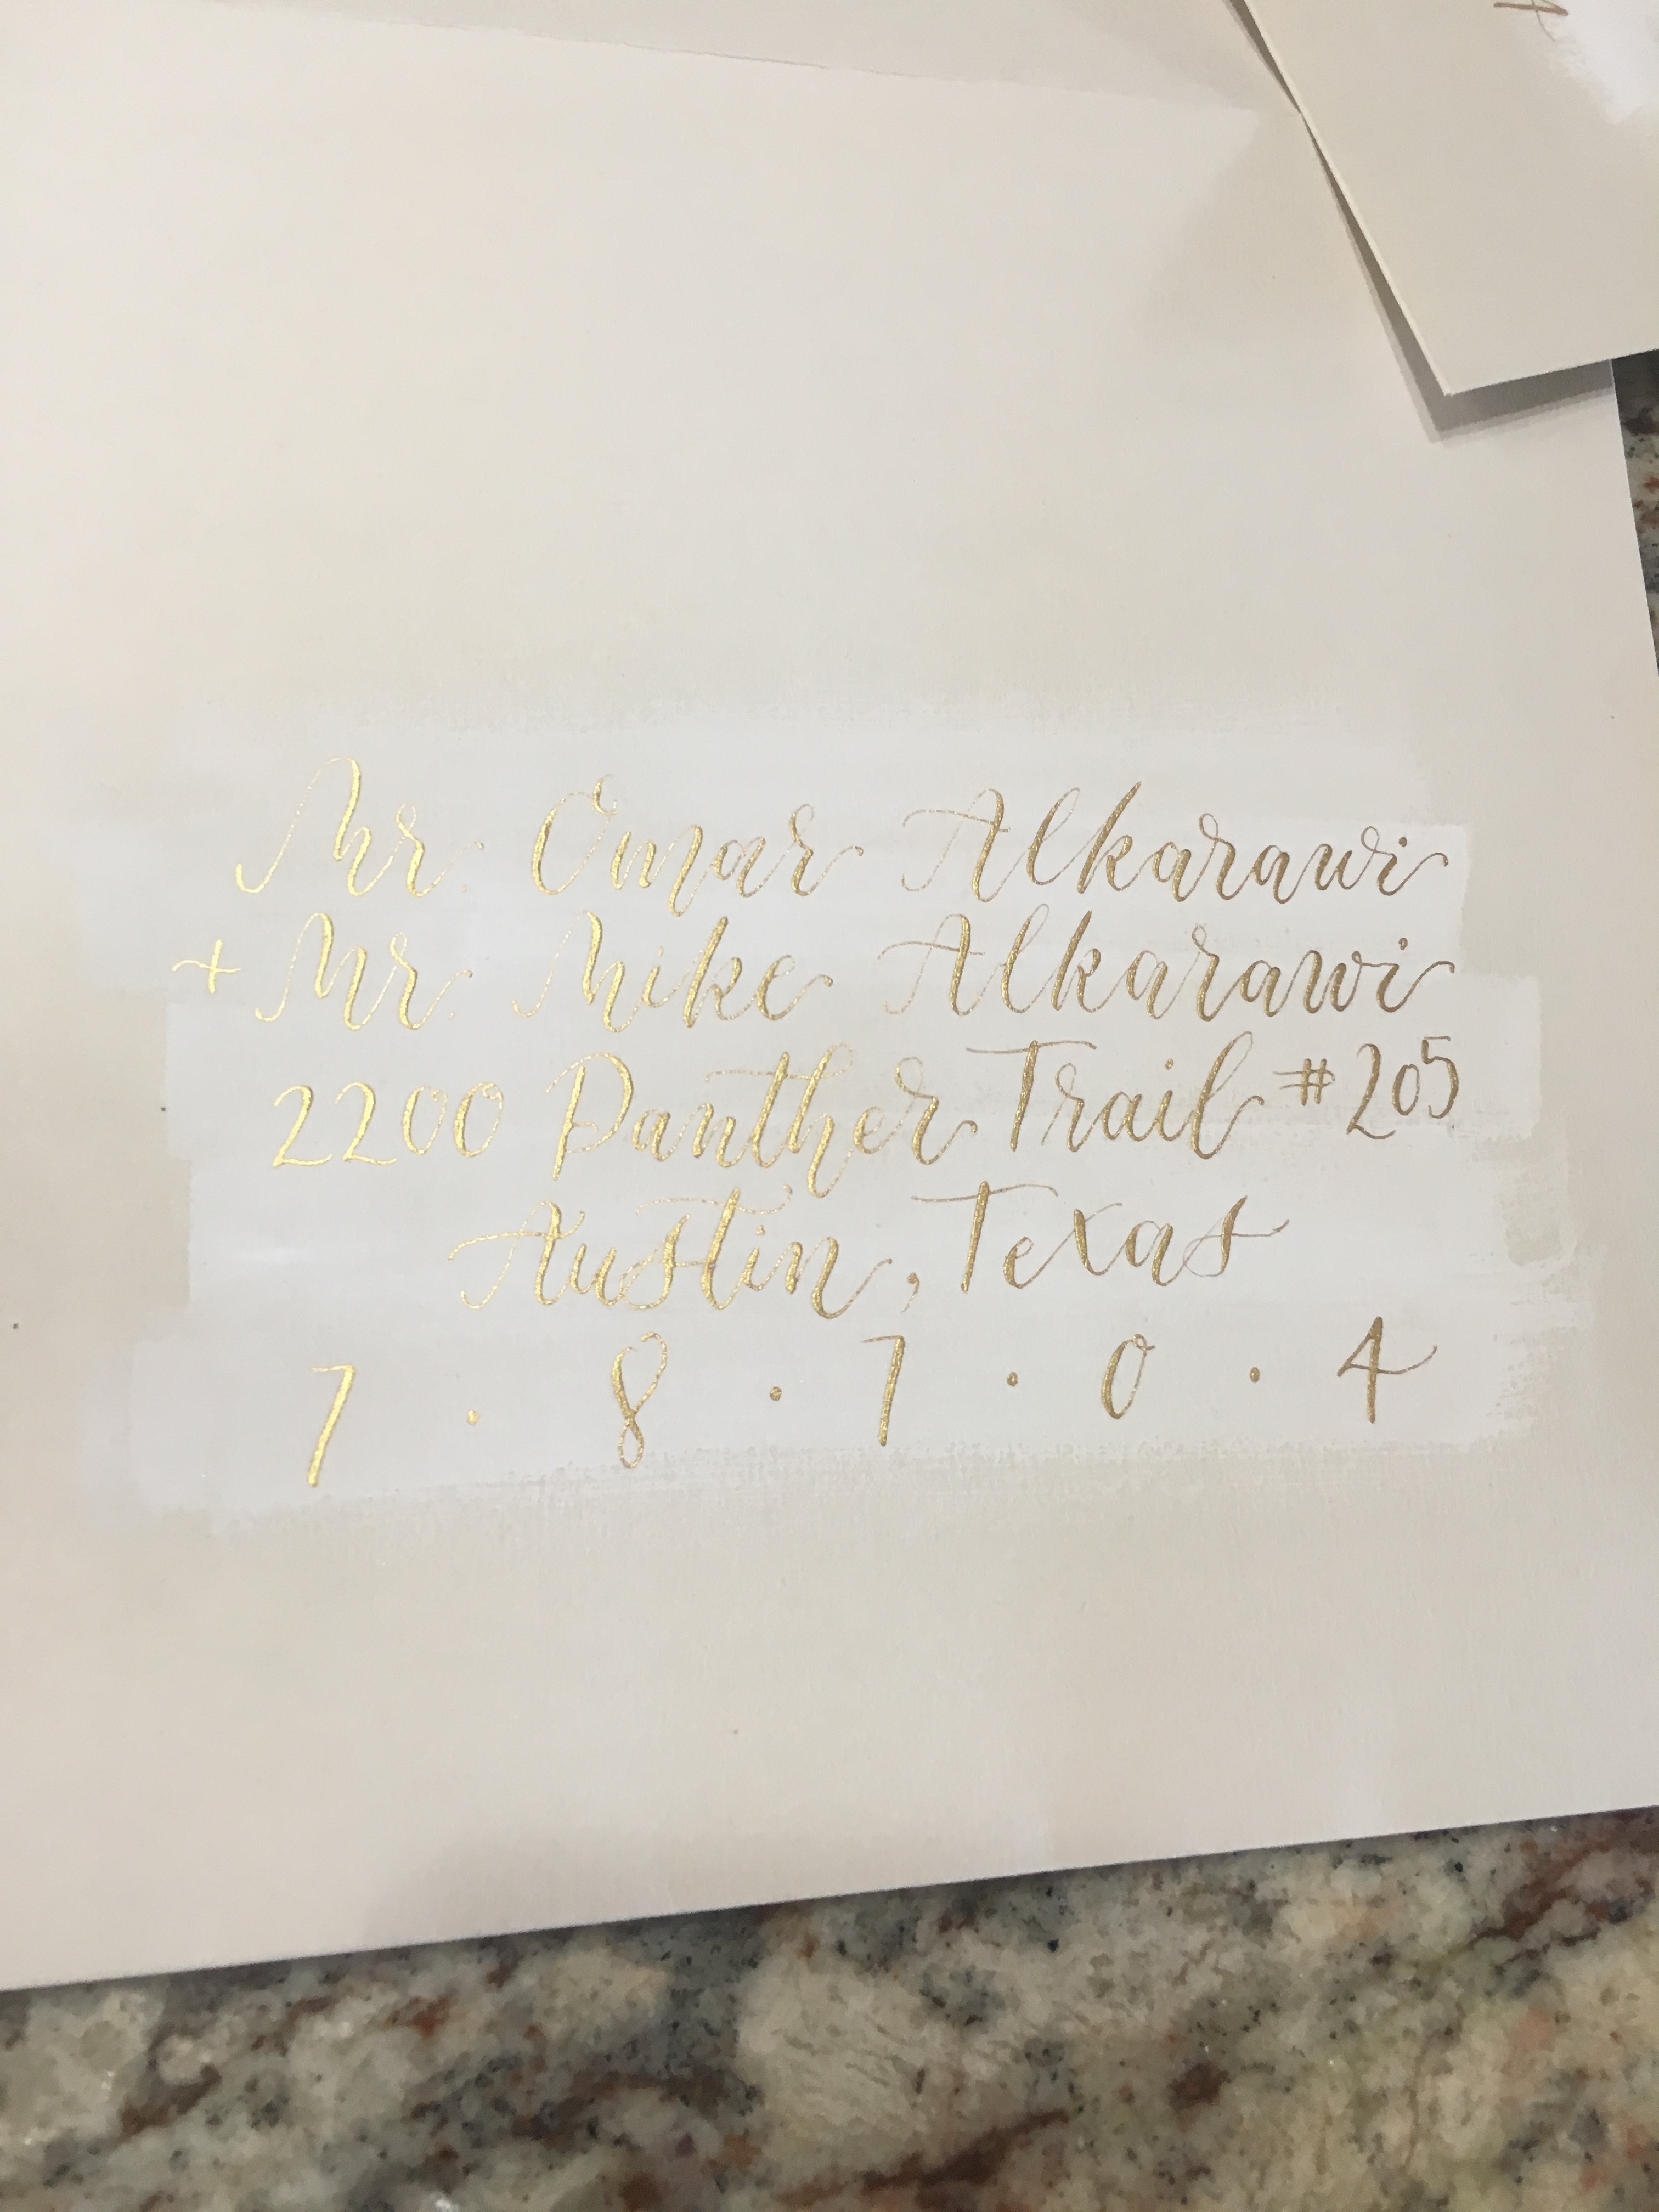 Mr. Omar Alkarawi
+ Mr. Mike Alkarawi
2200 Panther Trail #205
Austin, Texas
7 · 8 · 7 · 0 · 4